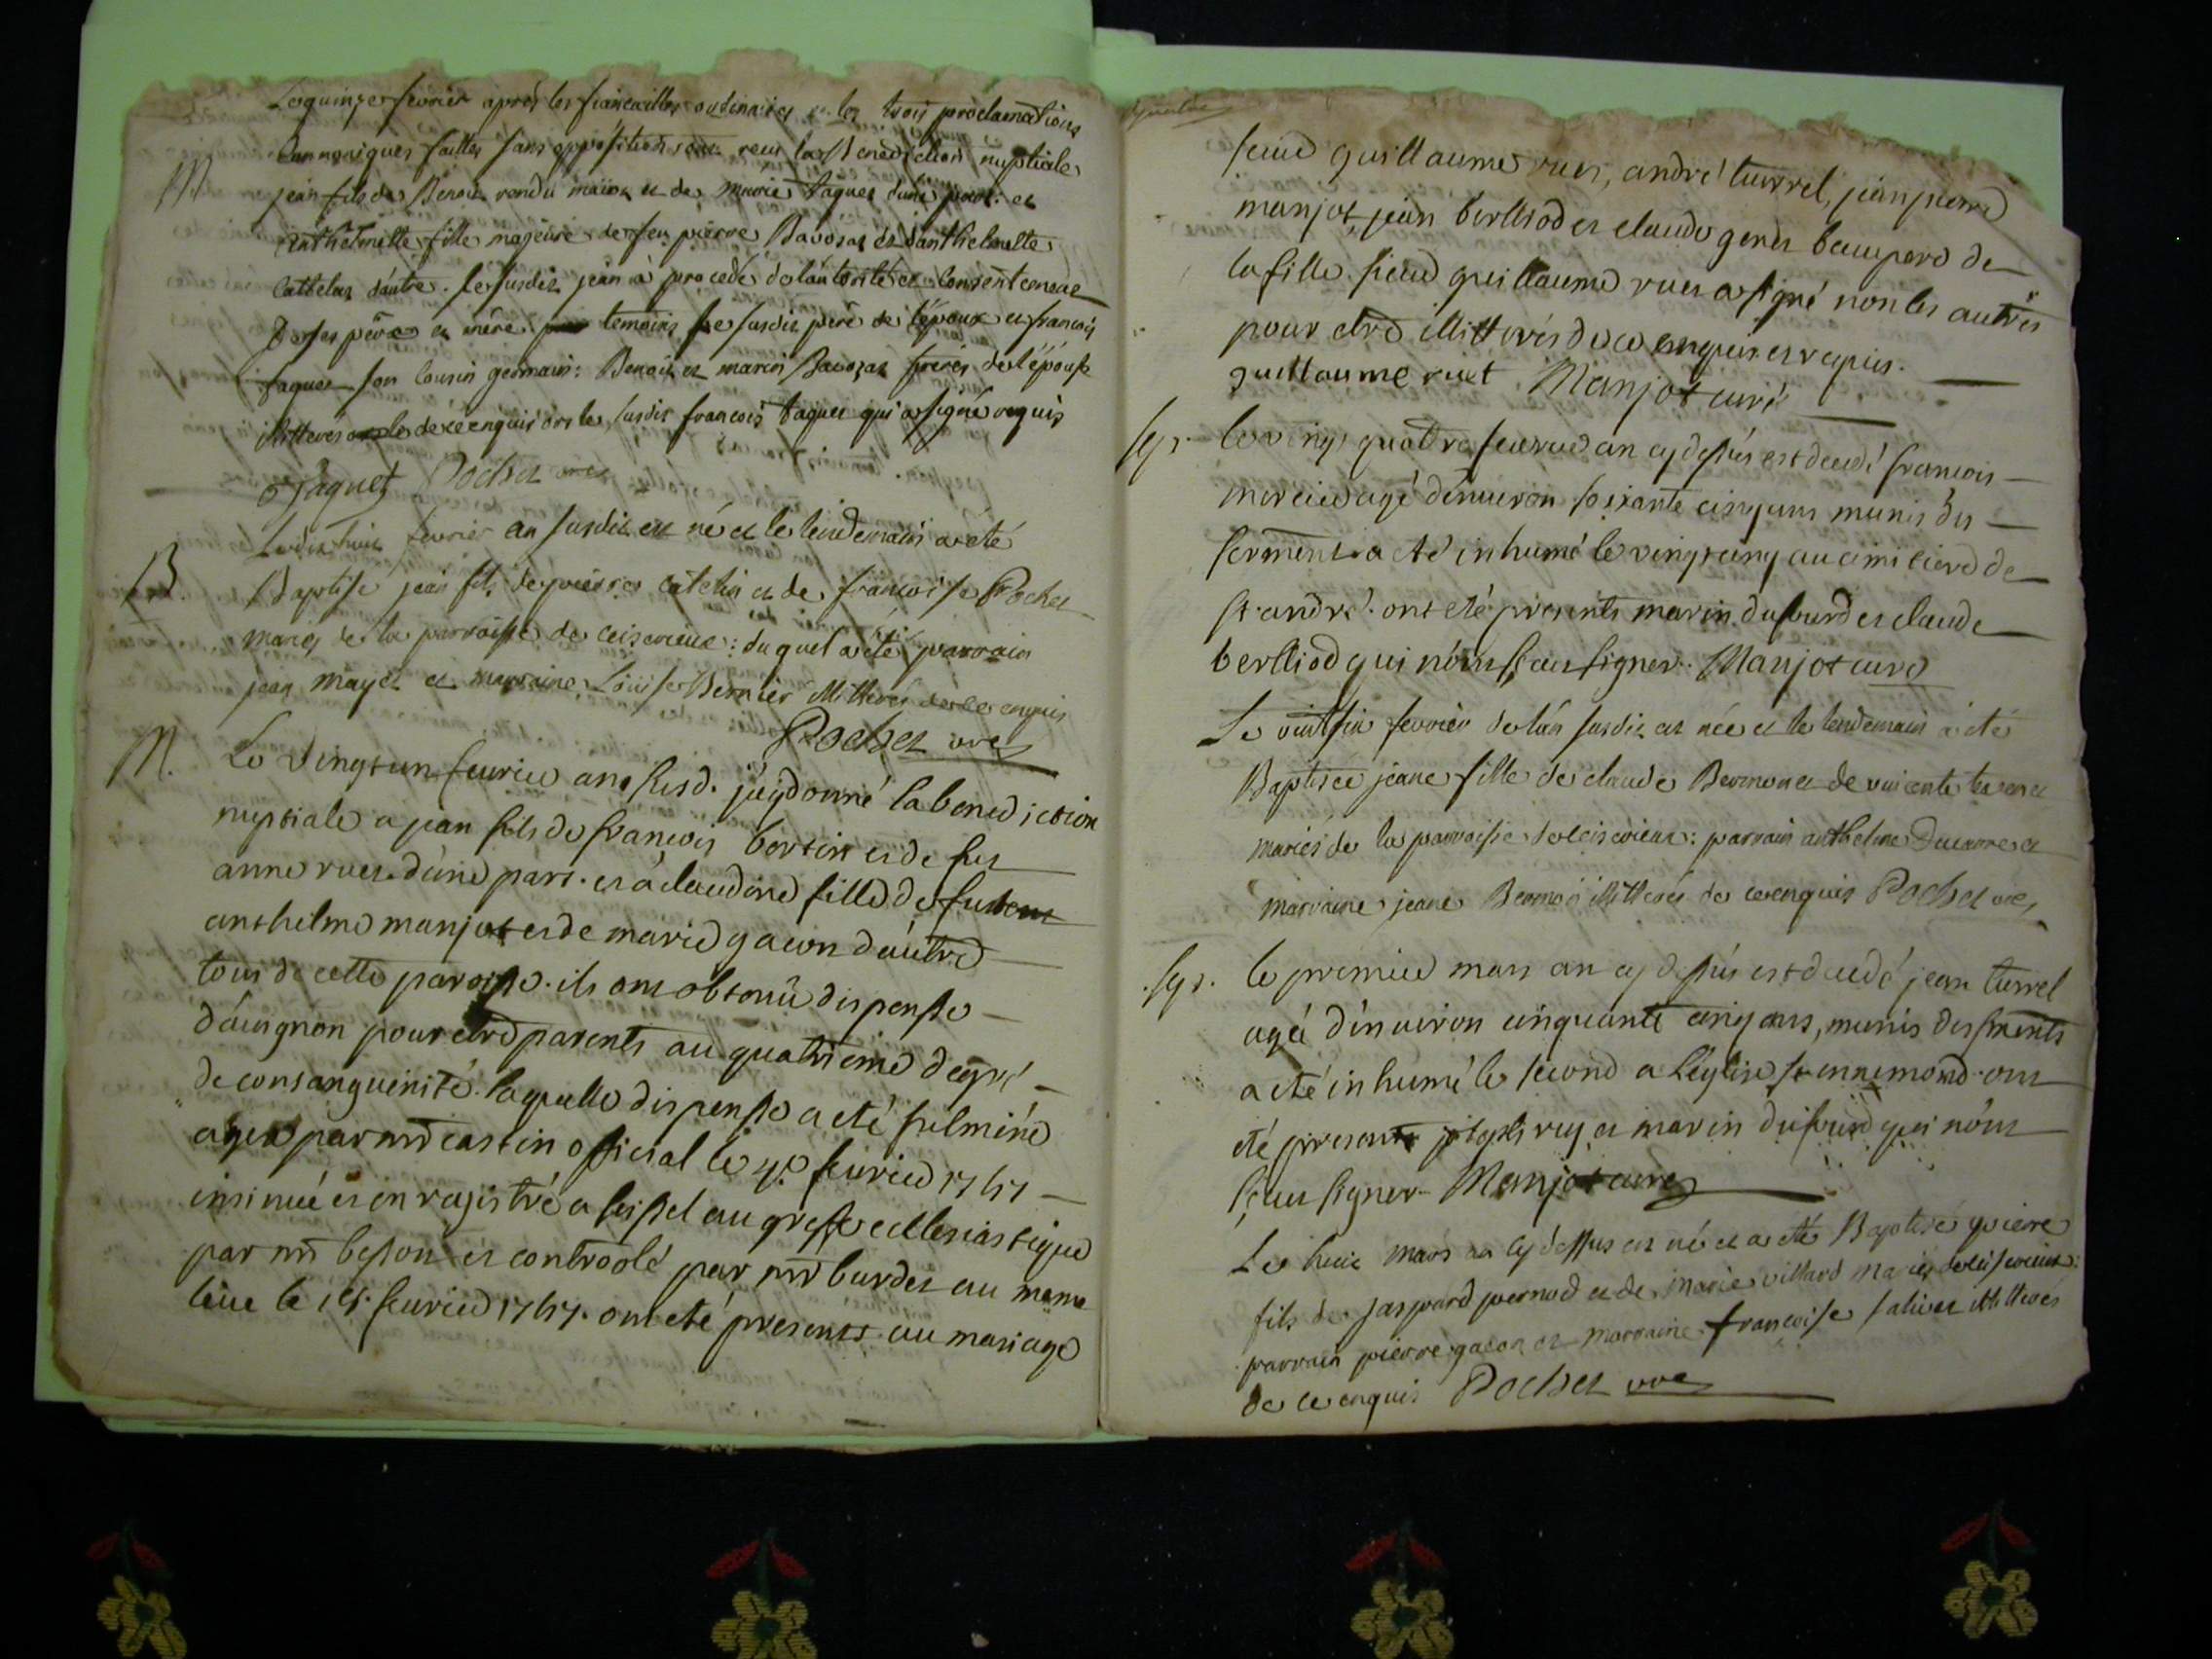 Le quinze fevrier après les fiancailles ordinaires et les trois proclamations
Cannoniques faittes sans opposition ont reçu la Benediction nuptiale
M. jean fils de Benoit rendu maior et de marie Jaquet d'une part: et
anthelmette fille majeure de feu pierre Bavozat et d'anthelmette
Cattelin d'autre. le susdit jean à procedé de l'autorité et consentement
de ses père et mère temoins le susdit père de l'époux et francois
Jaquet son cousin germain: Benoit et marin Bavozat freres de l'épouse
illitterés de ce enquis ors le susdit francois Jaquet qui a signé requis
f Jaquet Pochet vre
B. Le dix huit fevrier an susdit est né et le lendemain à eté
Baptisé jean fils de pierre catelin et de francoise Pochet
mariés de la parroisse de ceiserieux: du quel a été parrain
jean mayet et marraine Louise Bernier illitterés de ce enquis
Pochet vre
M. Le vingt un feurier an susd. j'ay donné la benediction
nuptiale a jean fils de francois bertin et de feu
anne ruet d'une part. et à claudine fille de feu
anthelme manjot et de marie gacon d'autre
tous de cette paroisse. ils ont obtenû dispense
d'auignon pour etre parents au quatrieme degré
de consanguinité. laquelle dispense a eté fulminé
par mr castin official le feurier 1767
insinué et enregistré a seissel au greffe ecclesiastique
par mr besson et controolé par mr burdet au meme
lieu le feurier 1767. ont eté presents au mariage
sieur guillaume ruet, andré turrel, jean pierre
manjot, jean berlliod et claude genet beaupere de
la fille. sieur guillaume ruet a signé non les autres
pour etre illitterés de ce enquis et requis.
guillaume ruet Manjot curé
sep. le vingt quatre feurier an cy dessus est decedé francois
mercier agé d'enuiron soixante cinq ans munis des
sacrements a eté inhumé le vingt cinq au cimitiere de
st andré. ont eté presents marin dufourd et claude
berlliod qui n'ont sceu signer. Manjot curé
Le vint six fevrier de l'an susdit est née et le lendemain à eté
Baptisée jeane fille de claude Bermon et de vincente
mariés de la parroisse de ceiserieux: parrain anthelme Ducarre et
marraine jeane Bermon illitterés de ce enquis Pochet vre
sep. le premier mars an cy dessus est decedé jean turrel
agé d'enuiron cinquante cinq ans, munis des sments
a eté inhumé le second a l'eglise st ennemond. ont
eté presents joseph rey et marin dufourd qui n'ont
sceu signer Manjot curé
Le huit mars an cy dessus est né et a eté Baptisé pierre
fils de gaspard pernod et de marie villard mariés de ceiserieux:
parrain pierre gacon et marraine francoise salivet illitterés
de ce enquis Pochet vre